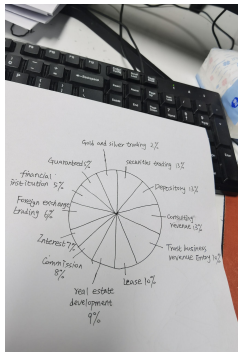 Gold and silver trading 2%
securities trading 13%
Depository 13%
Consulting
revenue 13%
Trust business
revenue Entry 10%
Lease 10%
real estate
development
9%
Commission
8%
Interest 7%
Foreign exchange
trading 6%
financial
institution 5%
Guaranteed 5%